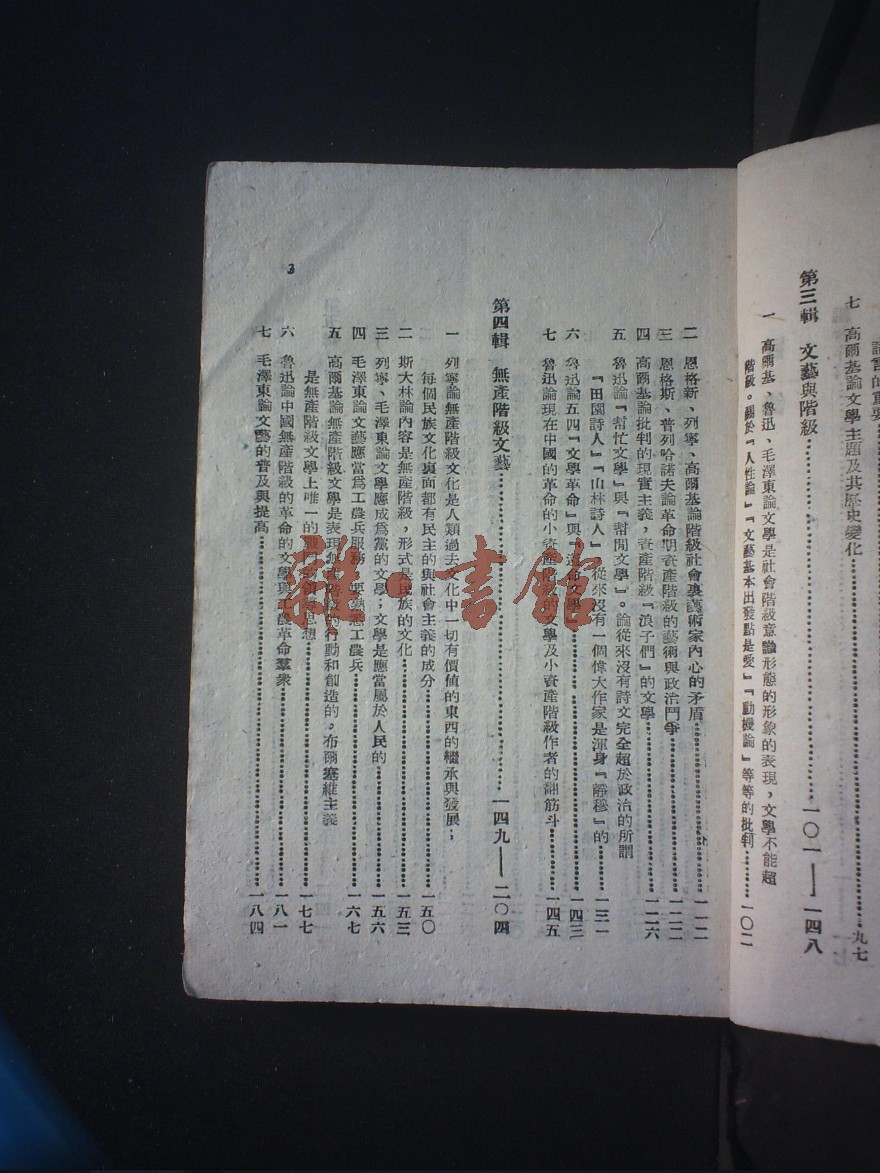 七 高爾基論文學主題及其歷史變化……九七
第三輯 文藝與階級……一〇一——一四八
一 高爾基、魯迅、毛澤東論文學是社會階級意識形態的形象的表現，文學不能超
階級。關於『人性論』『文藝基本出發點是愛』『動機論』等等的批判……一〇二
二 恩格斯、列寧、高爾基論階級社會裏藝術家內心的矛盾……一一二
三 恩格斯、普列哈諾夫論革命期資產階級的藝術與政治鬥爭……一二二
四 高爾基論批判的現實主義，資產階級『浪子們』的文學……一二六
五 魯迅論『幫忙文學』與『幫閒文學』。論從來沒有詩文完全超於政治的所謂
『田園詩人』『山林詩人』 從來沒有一個偉大作家是渾身『靜穆』的……一三一
六 魯迅論五四『文學革命』與『遵命文學』……一四三
七 魯迅論現在中國的革命的小資產階級的文學及小資產階級作者的翻筋斗……一四五
第四輯 無產階級文藝……一四九——二〇四
一 列寧論無產階級文化是人類過去文化中一切有價值的東西的繼承與發展；
每個民族文化裏面都有民主的與社會主義的成分……一五〇
二 斯大林論內容是無產階級，形式是民族的文化……一五三
三 列寧、毛澤東論文學應成爲黨的文學；文學是應當屬於人民的……一五六
四 毛澤東論文藝應當爲工農兵服務，要熟悉工農兵……一六七
五 高爾基論無產階級文學是表現無產階級的行動和創造的。布爾塞維主義
是無產階級文學上唯一的思想……一七七
六 魯迅論中國無產階級的革命的文學與工農革命羣衆……一八一
七 毛澤東論文藝的普及與提高……一八四
3
雜·書館